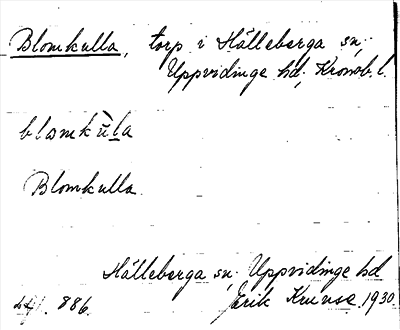 Blomkulla, torp i Hälleberga sn.
Uppvidinge hd, Kronob. l.
blomkùla
Blomkulla.
Hälleberga sn. Uppvidinge hd
886. Erik Kruuse 1930.